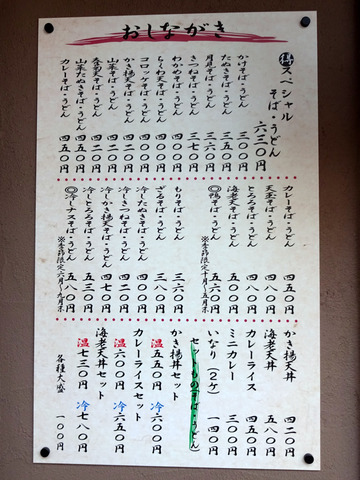 おしながき
得スペシャル
そば・うどん 六三〇円
かけそば・うどん 三〇〇円
たぬきそば・うどん 三五〇円
月見そば・うどん 三五〇円
きつねそば・うどん 三七〇円
わかめそば・うどん 四〇〇円
ちくわ天そば・うどん 四〇〇円
コロッケそば・うどん 四〇〇円
かき揚天そば・うどん 四二〇円
山菜そば・うどん 四二〇円
春菊天そば・うどん 四二〇円
山菜たぬきそば・うどん 四五〇円
カレーそば・うどん 四五〇円
カレーそば・うどん 四五〇円
天玉そば・うどん 四八〇円
とろろそば・うどん 四八〇円
海老天そば・うどん 五〇〇円
◎鴨そば・うどん 六五〇円
※季節限定十月〜五月末
もりそば・うどん 三六〇円
ざるそば・うどん 三八〇円
冷したぬきそば・うどん 四〇〇円
冷しきつねそば・うどん 四二〇円
冷しかき揚天そば・うどん 四七〇円
冷しとろろそば・うどん 五三〇円
◎冷しナスそば・うどん 五八〇円
※季節限定六月〜九月末
かき揚天丼 四二〇円
海老天丼 五八〇円
カレーライス 四五〇円
ミニカレー 三〇〇円
いなり(2ケ) 一四〇円
セットもの(そば・うどん)
かき揚丼セット
温 五五〇円 冷 六〇〇円
カレーライスセット
温 六〇〇円 冷 六五〇円
海老天丼セット
温 七三〇円 冷 七八〇円
各種大盛 一〇〇円